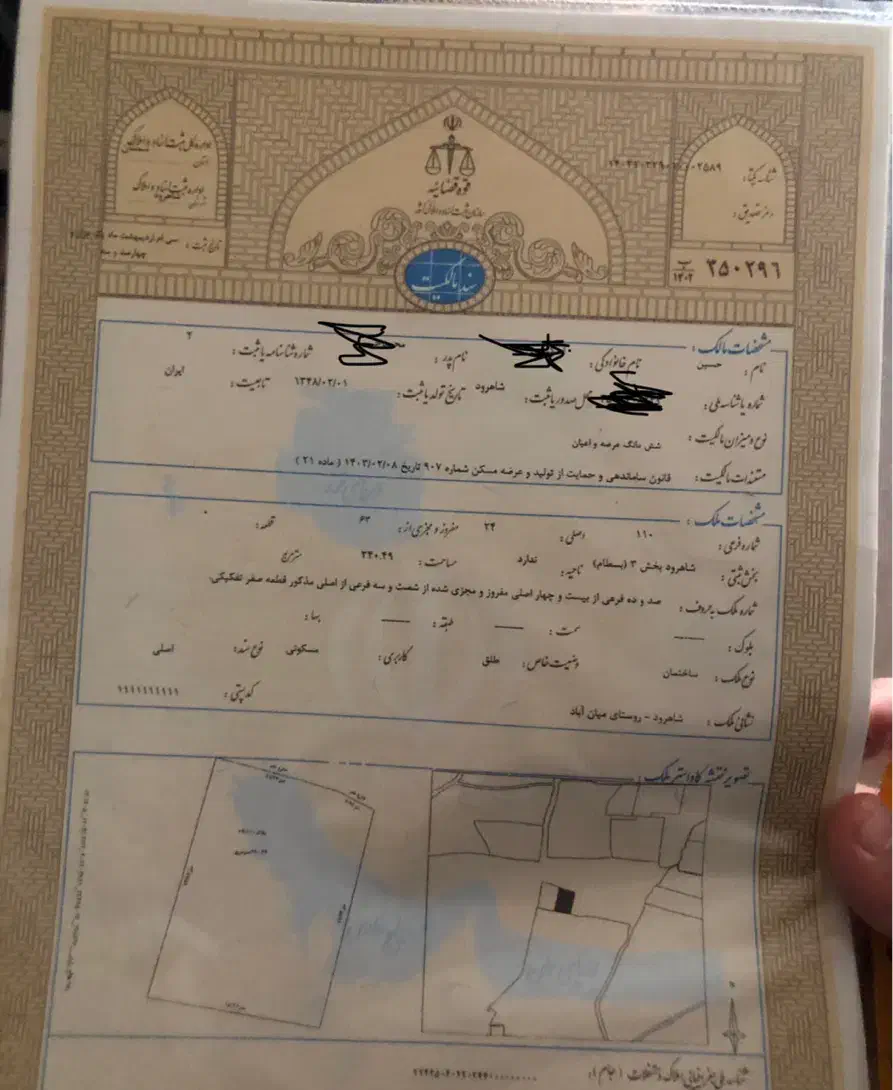 اداره کل ثبت اسناد و املاک
استان
اداره ثبت اسناد و املاک
تاریخ ثبت : سی ام اردیبهشت ماه
چهارصد و سه
قوه قضائیه
سازمان ثبت اسناد و املاک کشور
سند مالکیت
شناسه یکتا :
رمز تصدیق :
۳۵۰۲۹۶ ب ۱۴۰۲
مشخصات مالک :
نام : حسین نام خانوادگی : نام پدر : شماره شناسنامه یا ثبت : ۲
شماره یا شناسه ملی : محل صدور یا ثبت : شاهرود تاریخ تولد یا ثبت : ۱۳۴۸/۰۲/۰۱ تابعیت : ایران
نوع و میزان مالکیت : شش دانگ عرصه و اعیان
مستندات مالکیت : قانون ساماندهی و حمایت از تولید و عرضه مسکن شماره ۹۰۷ تاریخ ۱۴۰۳/۰۲/۰۸ ( ماده ۲۱ )
مشخصات ملک :
شماره فرعی : ۱۱۰ اصلی : ۲۴ مفروز و مجزی از : ۶۳ قطعه :
بخش ثبتی : شاهرود بخش ۳ (بسطام) ناحیه : ندارد مساحت : ۳۴۰.۴۹ مترمربع
شماره ملک به حروف : صد و ده فرعی از بیست و چهار اصلی مفروز و مجزی شده از شصت و سه فرعی از اصلی مذکور قطعه صفر تفکیکی.
بلوک : —— سمت : —— طبقه : —— بها :
نوع ملک : ساختمان وضعیت خاص : طلق کاربری : مسکونی نوع سند : اصلی
نشانی ملک : شاهرود - روستای میان آباد کد پستی : ۹۹۱۱۱۱۱۱۱۱
تصویر نقشه کاداستر ملک :
شناسه ملی جغرافیایی املاک و مستغلات (جام) :